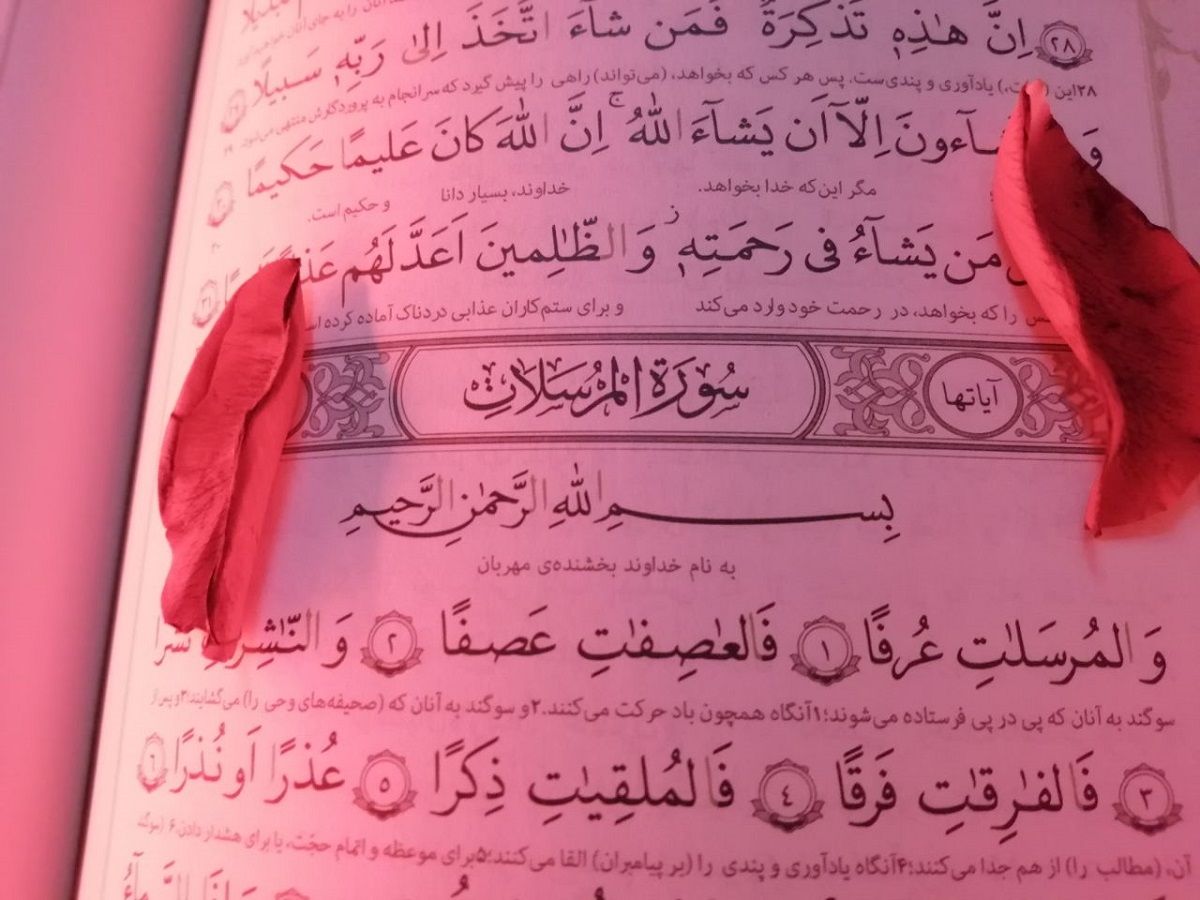 ۲۸ اِنَّ هٰذِهٖ تَذكِرَةٌ فَمَن شآءَ اتَّخَذَ اِلىٰ رَبِّهٖ سَبيلًا ۲۹
۲۸این یادآوری و پندی‌ست. پس هر کس که بخواهد، (می‌تواند) راهی را پیش گیرد که سرانجام به پروردگارش منتهی می‌شود. ۲۹
اِلّآ اَن يَشآءَ اللهُ ۚ اِنَّ اللهَ كانَ عَليمًا حَكيمًا ۳۰
مگر این‌که خدا بخواهد. خداوند، بسیار دانا و حکیم است. ۳۰
مَن يَشآءُ فى رَحمَتِهٖ ز وَ الظّٰلِمينَ اَعَدَّ لَهُم ۳۱
را که بخواهد، در رحمت خود وارد می‌کند و برای ستم‌کاران عذابی دردناک آماده کرده
آیاتها سُورَةُ المُرسَلاتِ
بِسمِ اللهِ الرَّحمٰنِ الرَّحيمِ
به نام خداوند بخشنده‌ی مهربان
وَ المُرسَلاتِ عُرفًا ۱ فَالعٰصِفٰتِ عَصفًا ۲ وَ النّٰشِرٰتِ نَشرًا
سوگند به آنان که پی در پی فرستاده می‌شوند؛۱آنگاه همچون باد حرکت می‌کنند.۲و سوگند به آنان که (صحیفه‌های وحی را) می‌گشایند؛۳و پس از
۳ فَالفٰرِقٰتِ فَرقًا ۴ فَالمُلقِيٰتِ ذِكرًا ۵ عُذرًا اَو نُذرًا ۶
آن، (مطالب را) از هم جدا می‌کنند؛۴آنگاه یادآوری و پندی را (بر پیامبران) القا می‌کنند؛۵برای موعظه و اتمام حجّت، یا برای هشدار دادن.۶ (سوگند